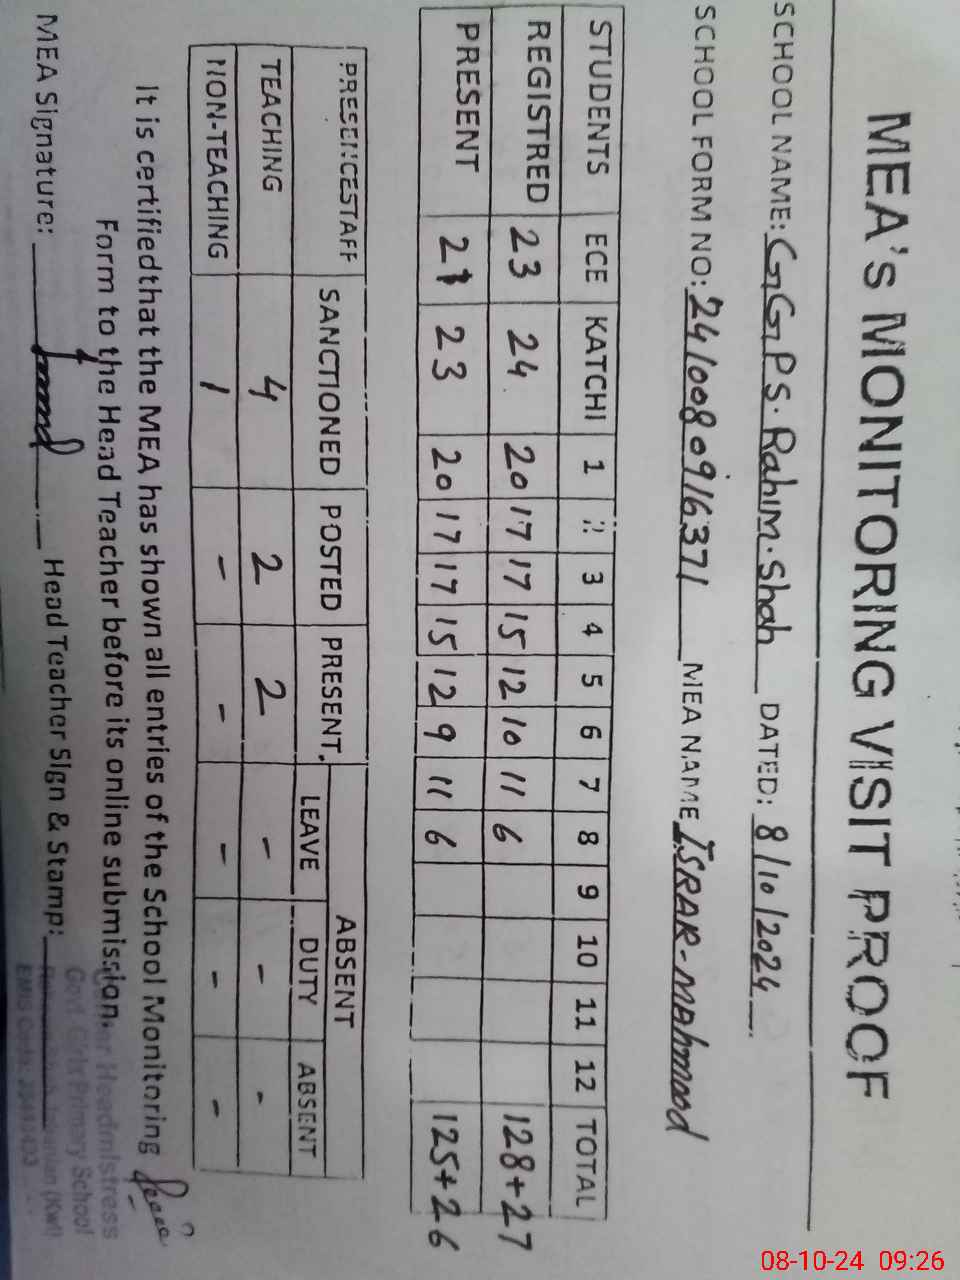 MEA's MONITORING VISIT PROOF
SCHOOL NAME: GGPS. Rahim. Shah DATED: 8/10/2024
SCHOOL FORM NO: 2410080916371 MEA NAME ISRAR-MAHMOOD
STUDENTS ECE KATCHI 1 2 3 4 5 6 7 8 9 10 11 12 TOTAL
REGISTRED 23 24 20 17 17 15 12 10 11 6 128+27
PRESENT 21 23 20 17 17 15 12 9 11 6 125+26
PRESENCESTAFF SANCTIONED POSTED PRESENT ABSENT
LEAVE DUTY ABSENT
TEACHING 4 2 2 - - -
NON-TEACHING 1 - - - - -
It is certified that the MEA has shown all entries of the School Monitoring
Form to the Head Teacher before its online submission.
MEA Signature: Head Teacher Sign & Stamp:
Headmistress
Govt. Girls Primary School
EMIS Code:
08-10-24 09:26